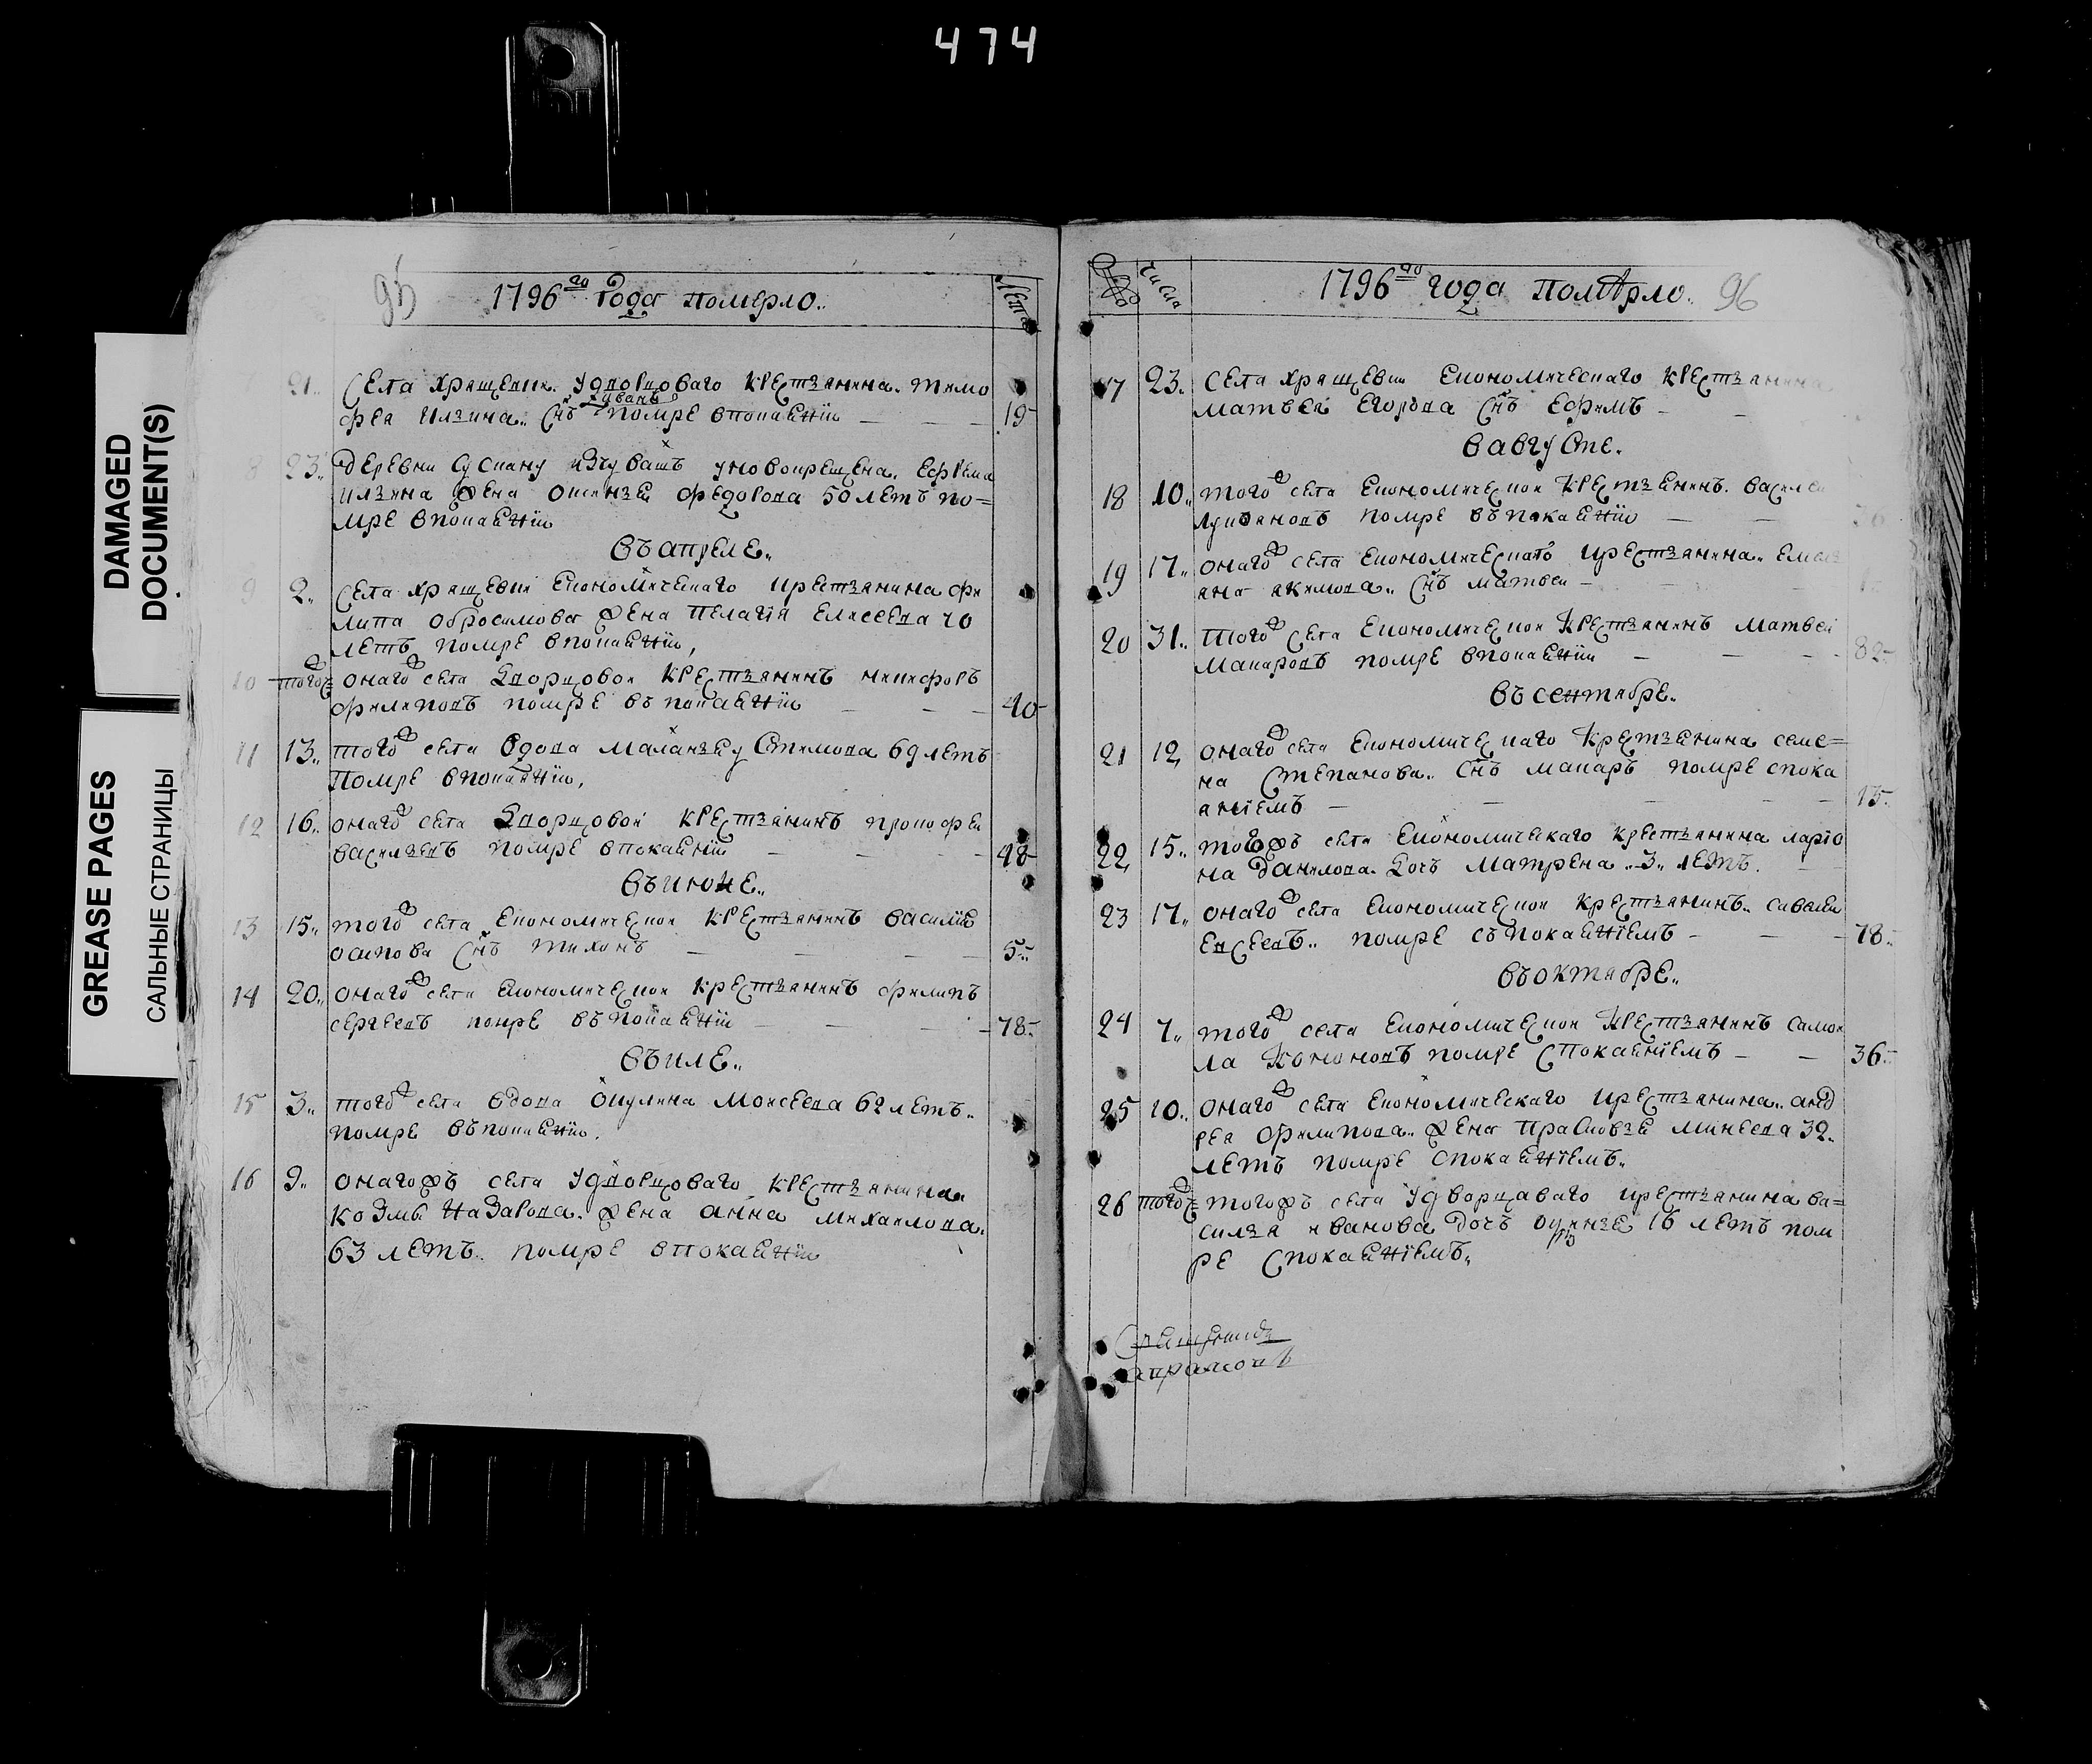 474
DAMAGED
DOCUMENT(S)
GREASE PAGES
САЛЬНЫЕ СТРАНИЦЫ
95
1796го года померло..
Лета
21.. Села хрящевки удворцоваго крестьянина тимо
иванъ
фея ильина.. снъ помре впокаенїи 19
8 23. деревни сускану изчувашъ уновокрещена ефрема
ильина жена феодора 50 летъ по=
мре впокаенїи
въ апреле..
9 2.. Села хрящевки економическаго крестьянина фи
липа обросимова жена пелагїя елисеева 70
летъ помре впокаенїи,
10 тогож онагож села дворцовои крестьянинъ никифоръ
филиповъ помре въ покаенїи 40
11 13.. тогож села вдова маланья устимова 69 летъ
помре впокаенїи,
12 16.. онагож села дворцовои крестьянинъ прокофеи
васильевъ помре впокаенїи 48
въ июне..
13 15.. тогож села економическои крестьянинъ василїя
осипова снъ тихонъ 5..
14 20.. онагож села економическои крестьянинъ филипъ
сергеевъ помре въ покаенїи 78..
въ иле..
15 3.. тогож села вдова окулина моисеева 62 летъ..
помре въпокаенїи.
16 9.. онагожъ села удворцоваго крестьянина
козмы назарова. жена анна михаилова.
63 летъ.. помре впокаенїи
числа
1796го года помѣрло.. 96
17 23.. Села хрящевки економическаго крестьянина
матвея егорова снъ ефимъ
в августе.
18 10.. тогож села економическои крестьянинъ. василеи
лукьяновъ помре въ покаенїи 36
19 17.. онагож села економическаго крестьянина.. емель
яна акимова.. снъ матвеи
20 31.. тогож села економическои крестьянинъ матвеи
макаровъ помре впокаенїи 82
въ сентябре.
21 12, онагож села економическаго крестьянина семе=
на степанова.. снъ макаръ помре спока
янїемъ 15.
22, 15.. тогожъ села економическаго крестьянина ларїо
на данилова. дочъ матрена ..3.. летъ.
23 17.. онагож села економическои крестьянинъ.. савелеи
евсеевъ.. помре съ покаенїемъ 78..
въ октябре..
24 7.. тогож села економическои крестьянинъ самои
ла кононовъ помре спокаенїемъ 36..
25 10.. онагож села економическаго крестьянина.. анд
рея филипова.. жена прасковья минеева 32..
летъ помре спокаенїемъ..
26 тогож тогожъ села удворцаваго крестьянина ва=
силья иванова дочъ 16 летъ пом
ре спокаенїемъ..